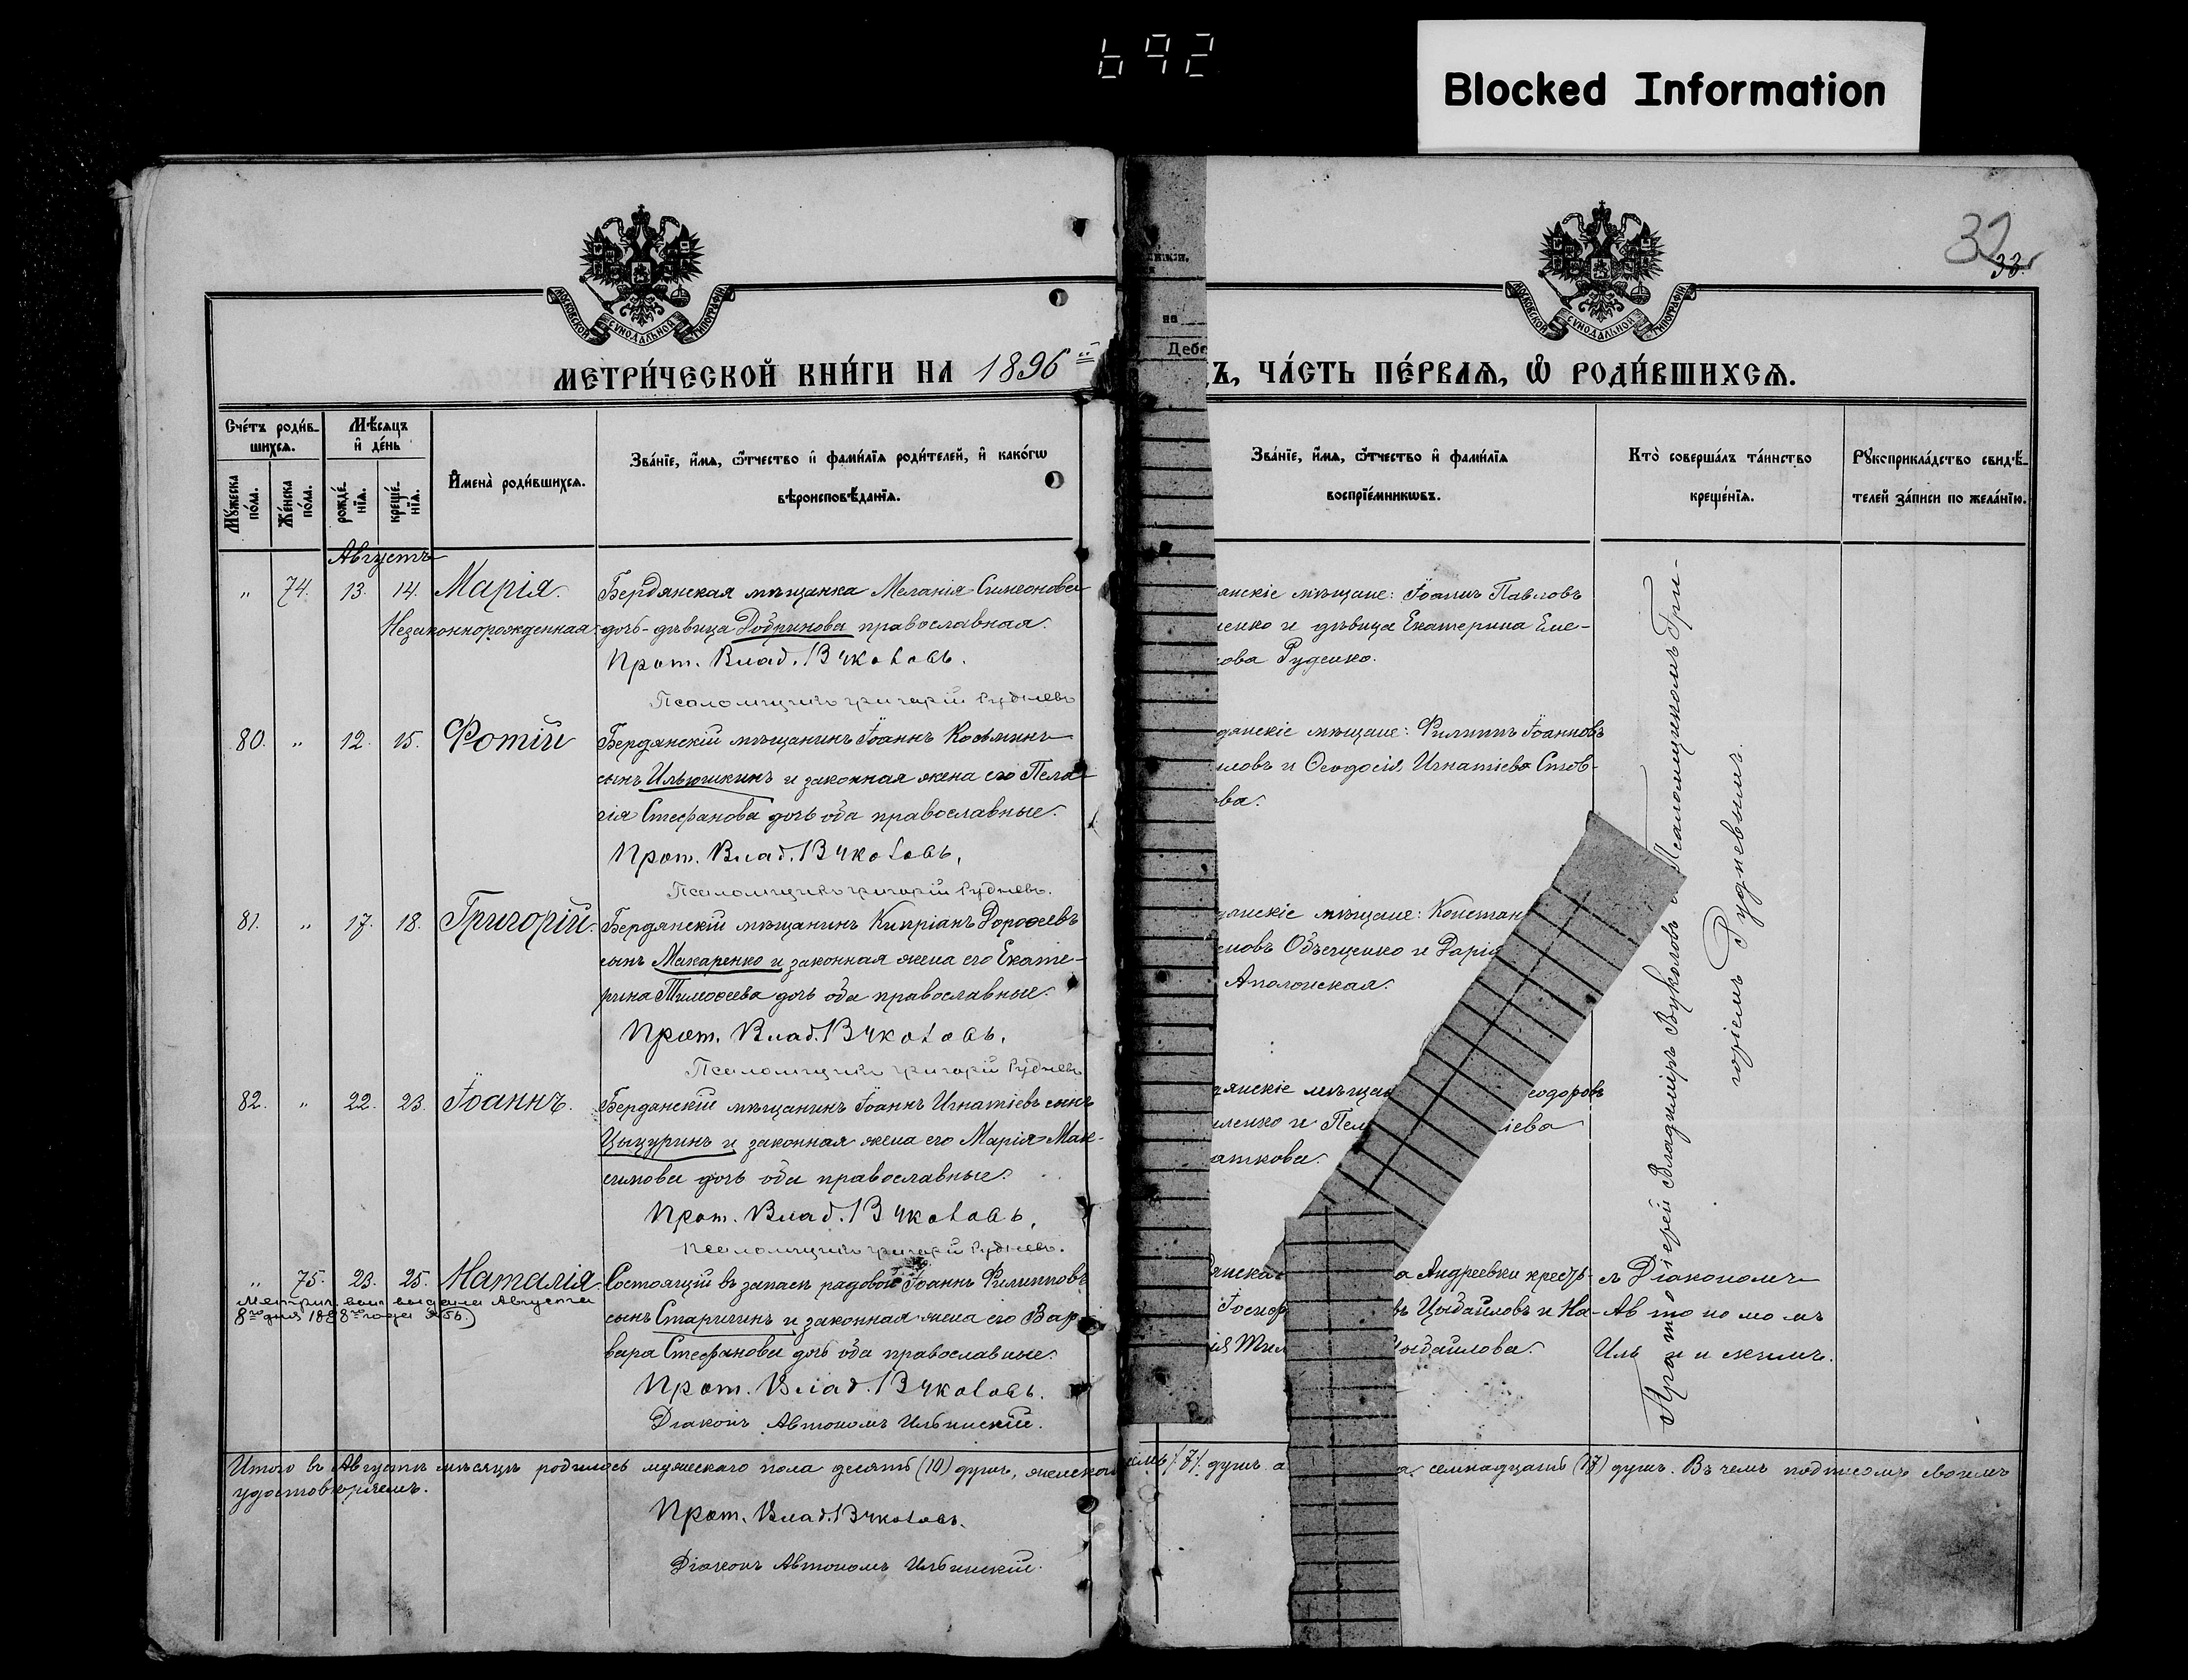 692
Blocked Information
МОСКОВСКОЙ СѴНОДАЛЬНОЙ ТИПОГРАФІИ
МОСКОВСКОЙ СѴНОДАЛЬНОЙ ТИПОГРАФІИ
32
33.
МЕТРИ́ЧЕСКОЙ КНИ́ГИ НА 1896
Ъ, ЧА́СТЬ ПЕ́РВАѦ, Ѽ РОДИ́ВШИХСѦ.
на
Дебе
Сче́тъ роди́в-
шихсѧ.
Мѣ́сѧцъ
и҆ де́нь
Мꙋ́жеска
по́ла.
Же́нска
по́ла.
рожде́-
нїѧ.
креще́-
нїѧ.
И҆мена̀ роди́вшихсѧ.
Зва́нїе, и҆́мѧ, ѻ҆́тчество и҆ фами́лїѧ роди́телей, и҆ како́гѡ
вѣроисповѣ́данїѧ.
Зва́нїе, и҆́мѧ, ѻ҆́тчество и҆ фами́лїѧ
воспрїе́мникѡвъ.
Кто̀ соверша́лъ та́инство
креще́нїѧ.
Рꙋкоприкла́дство свидѣ́-
телей за́писи по жела́нїю.
Августъ
" 74. 13. 14. Марія. Бердянская мѣщанка Меланія Симеонова
Незаконнорожденная дочь-дѣвица Добринова православная.
Прот. Влад. Вуколовъ.
Псаломщикъ Григорій Рудневъ
янскіе мѣщане: Іоаннъ Павловъ
енко и дѣвица Екатерина Еме-
ова Руденко.
80. " 12. 15. Фотій Бердянскій мѣщанинъ Іоаннъ Косьминъ
сынъ Ильюшкинъ и законная жена его Пела-
гія Стефанова дочь оба православные.
Прот. Влад. Вуколовъ.
Псаломщикъ Григорій Рудневъ.
дянскіе мѣщане: Филиппъ Іоанновъ
иловъ и Ѳеодосія Игнатіева Стов-
ва.
81. " 17. 18. Григорій. Бердянскій мѣщанинъ Кипріанъ Дороѳеевъ
сынъ Макаренко и законная жена его Екате-
рина Тимоѳеева дочь оба православные.
Прот. Влад. Вуколовъ.
Псаломщикъ Григорій Рудневъ
дянскіе мѣщане: Констан
новъ и Дарія
Аполонская.
82. " 22. 23. Іоаннъ. Бердянскій мѣщанинъ Іоаннъ Игнатіевъ сынъ
Цыцуринъ и законная жена его Марія Мак-
симова дочь оба православные.
Прот. Влад. Вуколовъ.
Псаломщикъ Григорій Рудневъ.
дянскіе мѣщан еодоровъ
иленко и Пел іева
аткова.
" 75. 23. 25. Наталія. Состоящій въ запасѣ рядовой Іоаннъ Филипповъ
сынъ Старичинъ и законная жена его Вар-
вара Стефанова дочь оба православные.
Прот. Влад. Вуколовъ.
Діаконъ Автономъ Ильинскій.
выдана Августа
янска а Андреевки кресть-
Іосиф въ Цыбаиловъ и На-
ія Тим Цыбаилова.
съ Діакономъ
Автономомъ
Ильинскимъ.
Протоіерей Владиміръ Вуколовъ съ Псаломщикомъ Гри-
горіемъ Рудневымъ.
Итого въ Августѣ мѣсяцѣ родилось мужескаго пола десять (10) душъ, женскаго семь (7) душъ а семнадцать (17) душъ. Въ чемъ подписомъ своимъ
удостовѣряемъ.
Прот. Влад. Вуколовъ.
Діаконъ Автономъ Ильинскій.